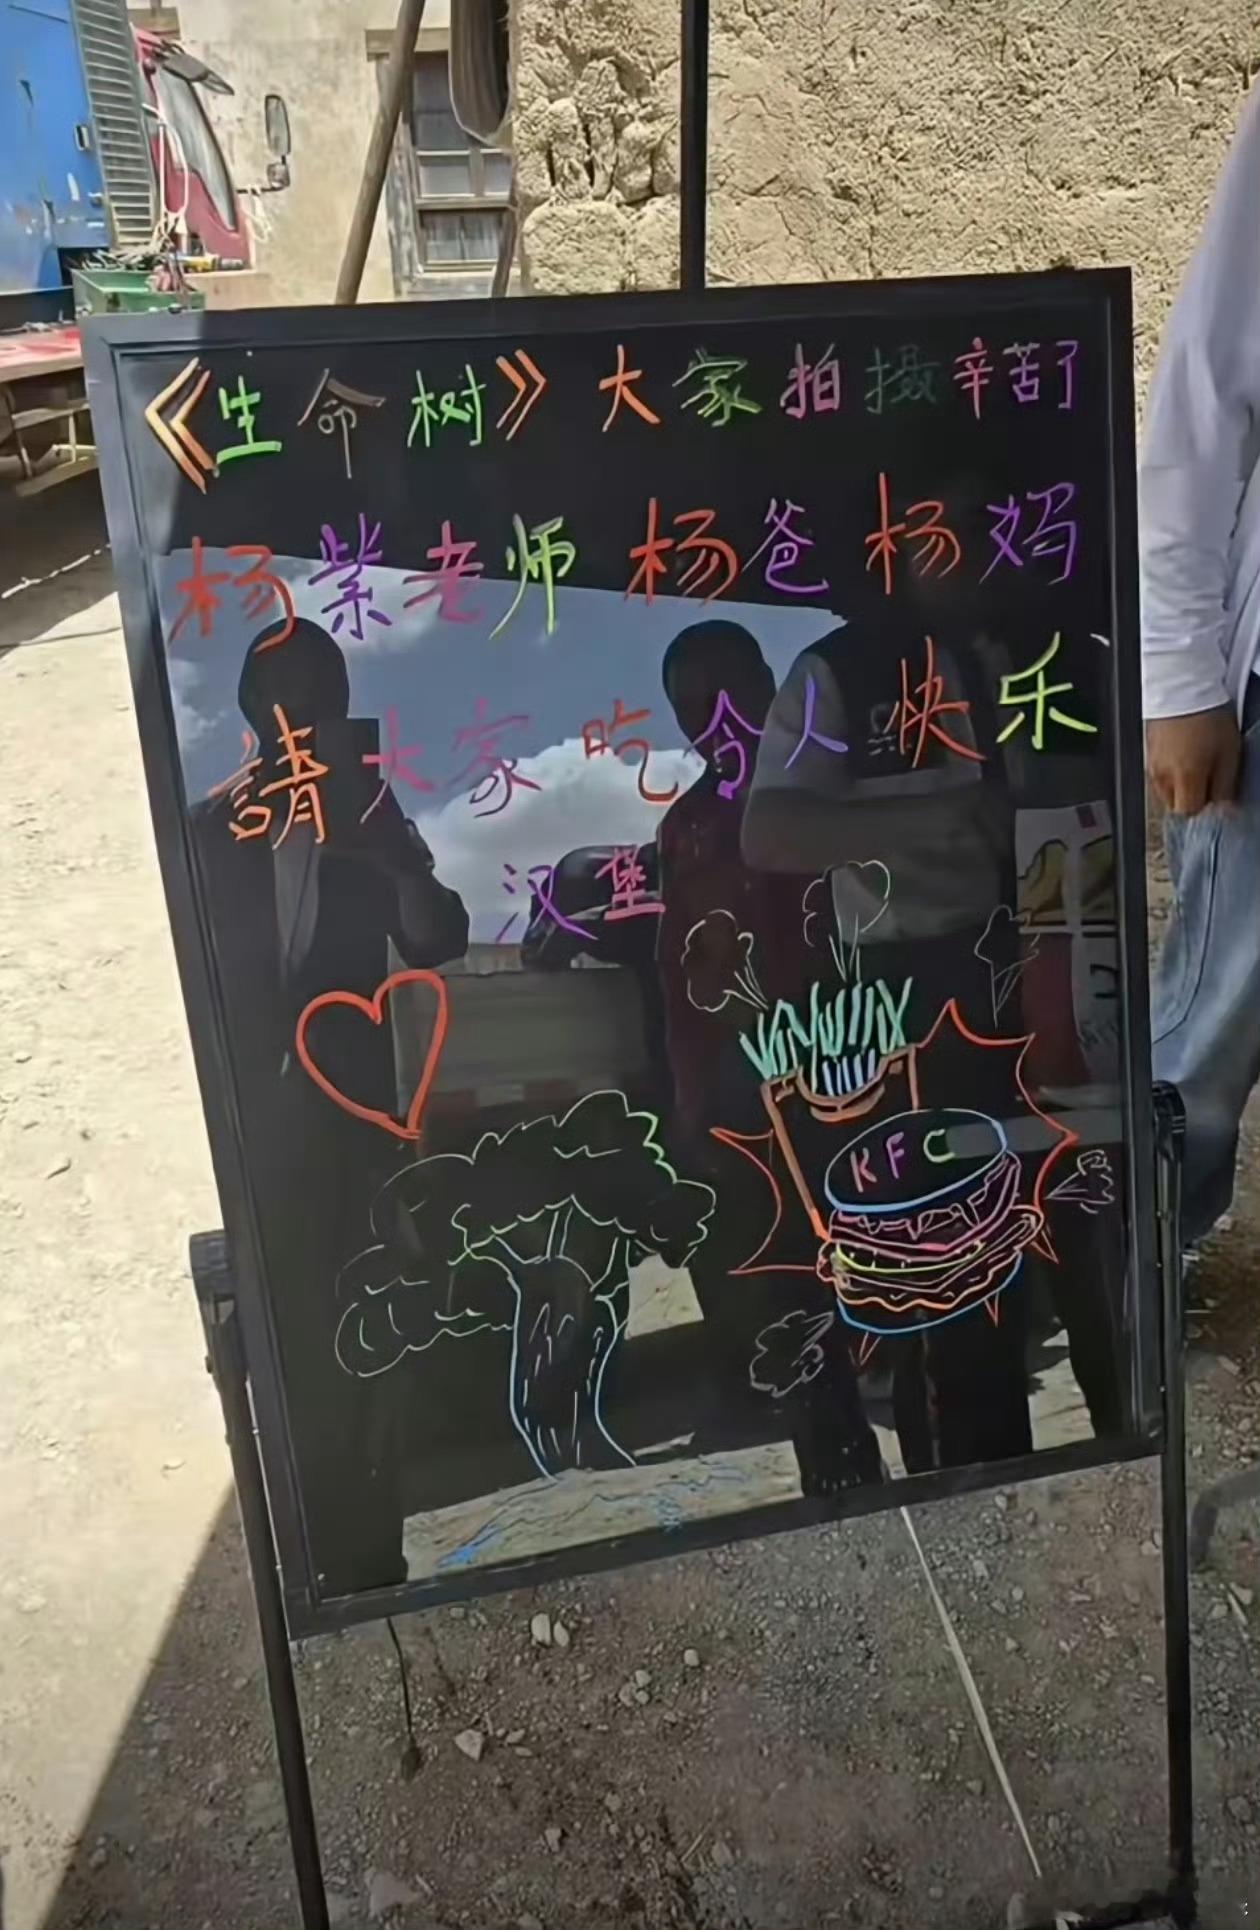 《生命树》大家拍摄辛苦了
杨紫老师 杨爸 杨妈
請大家吃令人快乐
汉堡
KFC